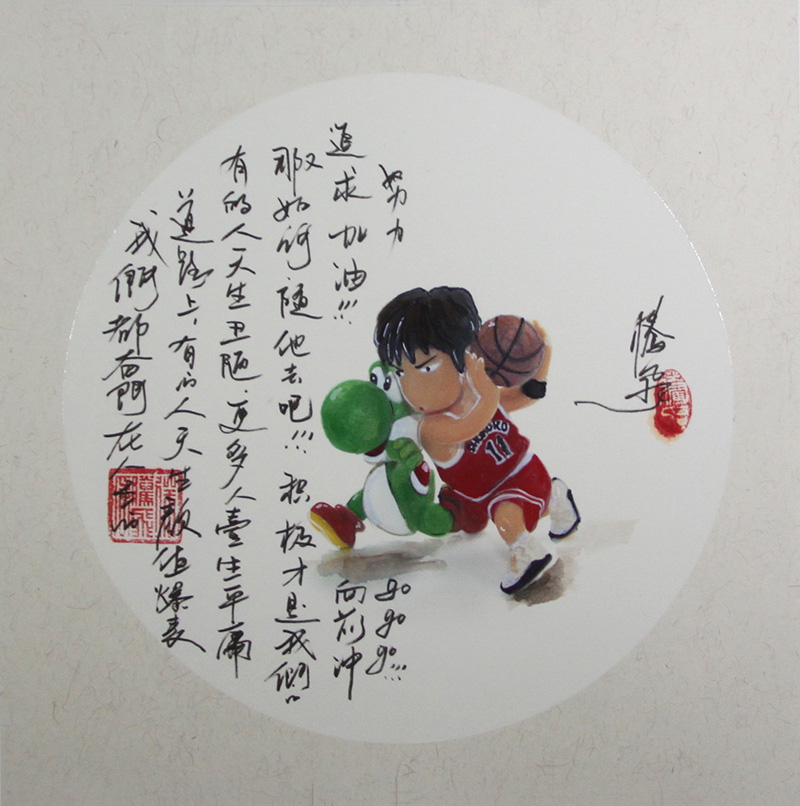 我們都奮鬥在人生的
道路上,有的人天生颜值爆表
有的人天生丑陋.更多人壹生平庸
那又如何隨他去吧!!!积极才是我们的
追求加油!!!向前冲
努力go go go!!!